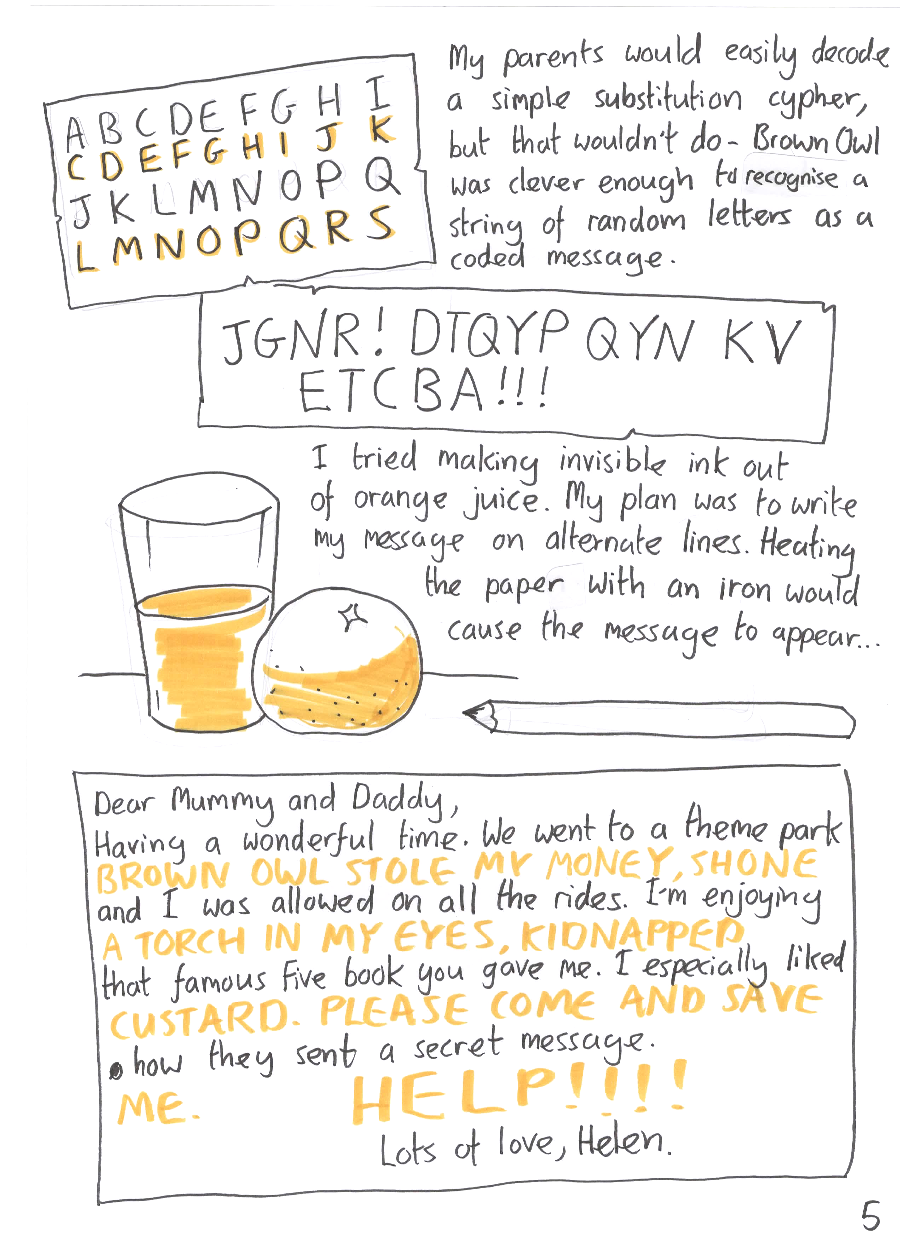 A B C D E F G H I
C D E F G H I J K
J K L M N O P Q
L M N O P Q R S
My parents would easily decode
a simple substitution cypher,
but that wouldn't do - Brown Owl
was clever enough to recognise a
string of random letters as a
coded message.
JGNR! DTQYP QYN KV
ETCBA!!!
I tried making invisible ink out
of orange juice. My plan was to write
my message on alternate lines. Heating
the paper with an iron would
cause the message to appear...
Dear Mummy and Daddy,
Having a wonderful time. We went to a theme park
BROWN OWL STOLE MY MONEY, SHONE
and I was allowed on all the rides. I'm enjoying
A TORCH IN MY EYES, KIDNAPPED
that famous Five book you gave me. I especially liked
CUSTARD. PLEASE COME AND SAVE
how they sent a secret message.
ME. HELP!!!!
Lots of love, Helen.
5